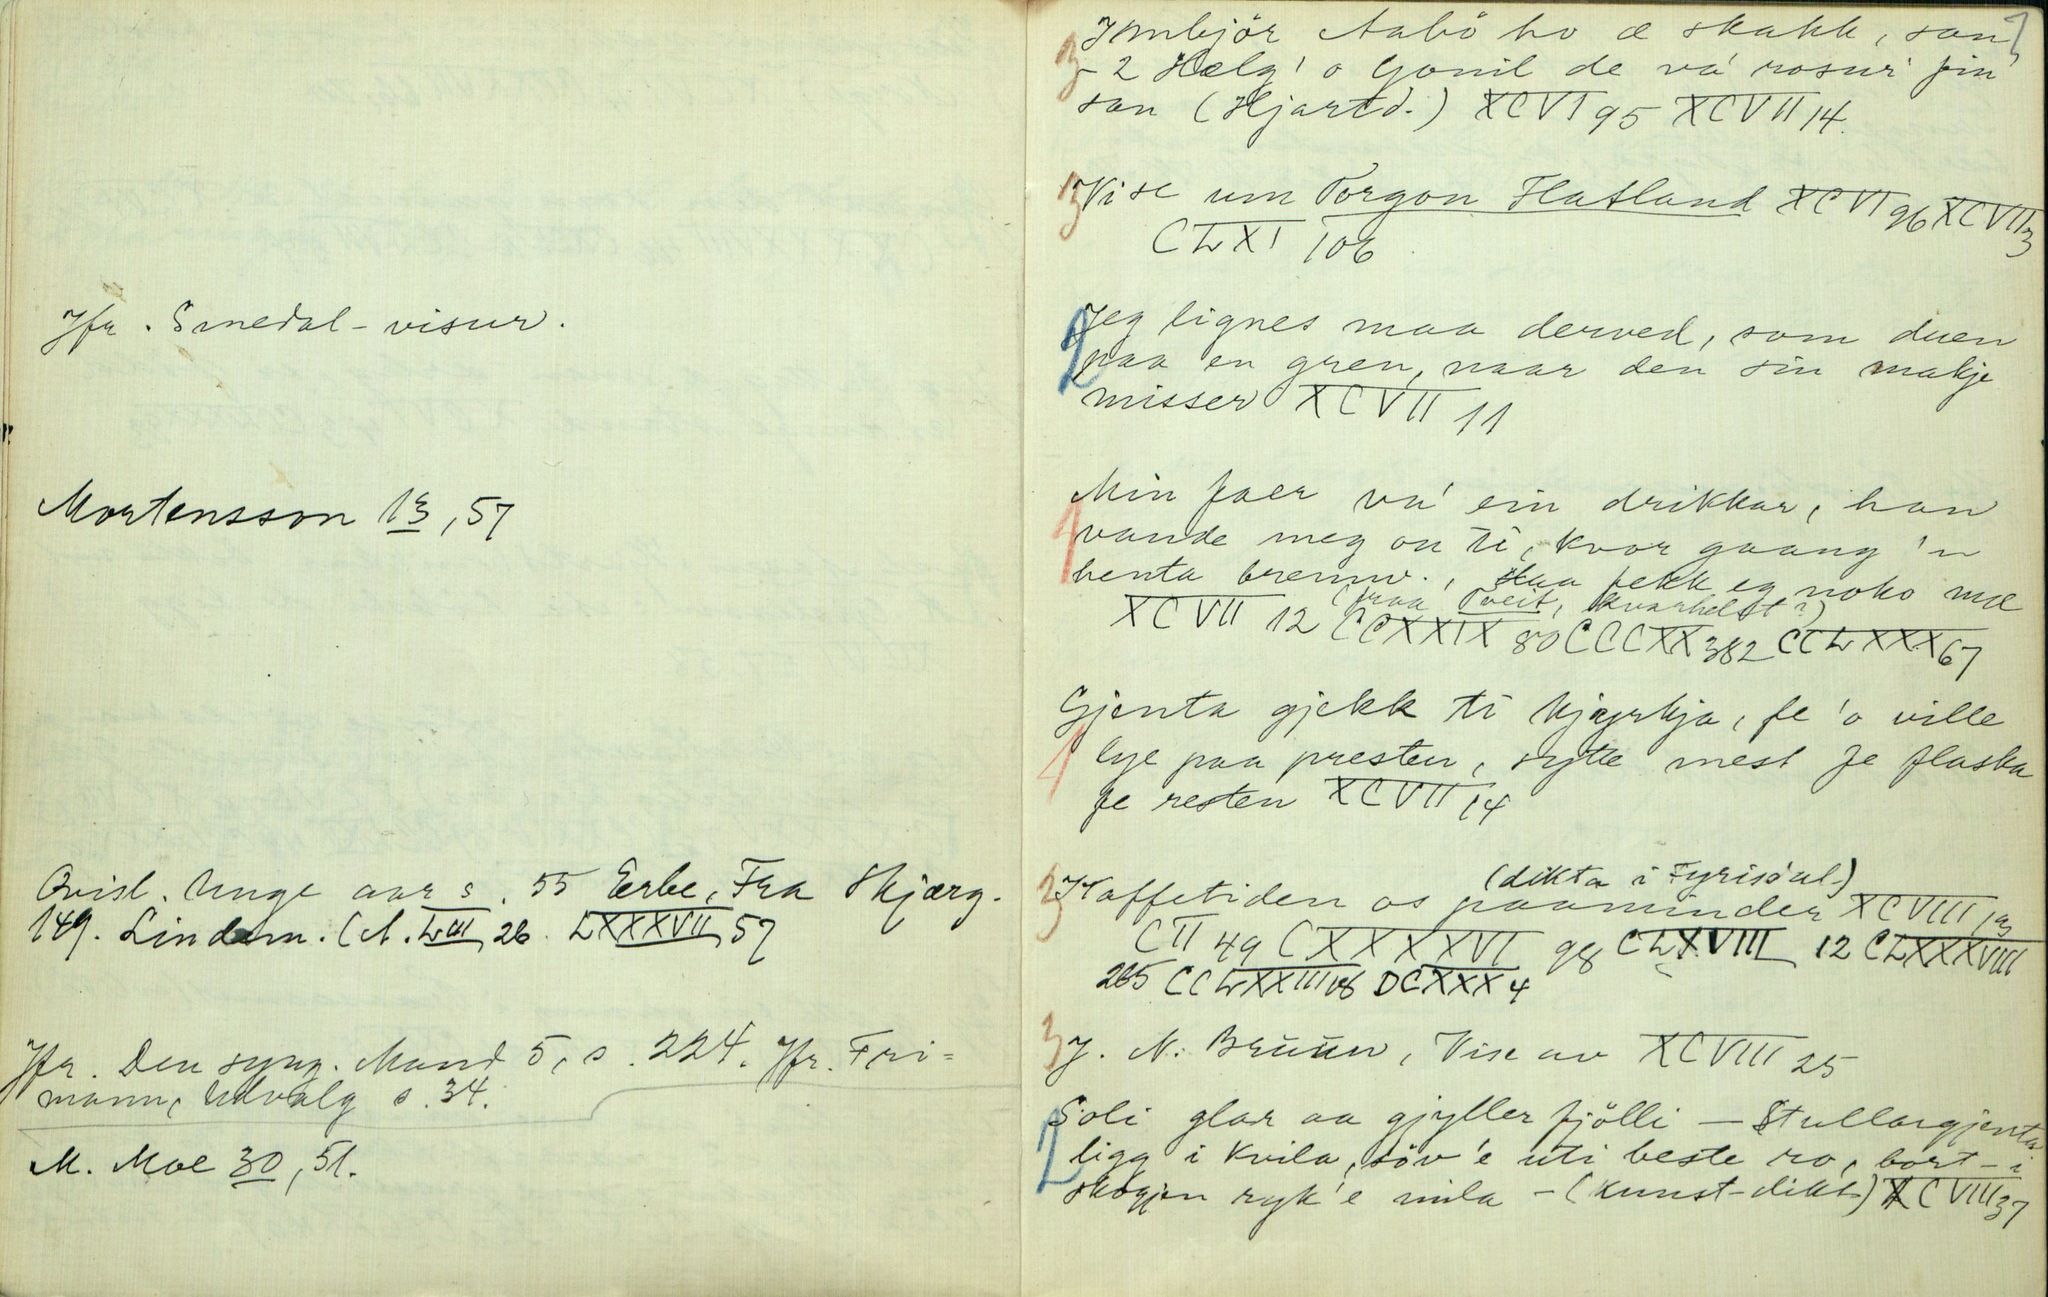 Jfr. Smedal-visur.
Mortensson 13, 57
Qvisl. Unge aar s. 55 Erbe, Fra Skjærg.
149. Lindem. (M. LIII, 26. LXXXVII, 57
Jfr. Den syng. Mand 5, s. 224. Jfr. Fri=
mann, Udvalg s. 34.
M. Moe 30, 51.
7
3 Imbjör Aabö ho æ skakk, san
- 2 Hælg' o Gonil de va' rosur fin
san (Hjartd.) XCVI 95 XCVII 14.
3 Vise um Torgon Flatland XCVI 96 XCVII 3
CLXI 106
2 Jeg lignes maa derved, som duen
paa en gren, naar den sin makje
misser XCVII 11
1 Min faer va' ein drikkar, han
vande meg on ti, kvor gaang 'n
henta brennv., saa fekk eg noko mæ
(fraa Tveit, Kvarhelst?)
XCVII 12 CCXXIX 80 CCCXX 382 CCLXXX 67
1 Gjenta gjekk ti kjyrkja, fe 'o ville
lye paa presten, sytte mest fe flaska
fe resten XCVII 14
(dikta i Fyrisdal)
3 Kaffetiden os paaminder XCVIII 19
CII 49 CXXXXVI 98 CLXVIII 12 CLXXXVIII
265 CCLXXIII 18 DCXXX 4
3 J. N. Bruun, Vise av XCVIII 25
2 Soli glar aa gjyller fjölli - Stullargjenta
ligg i kvila, söv 'e uti beste ro, bort-i
skogjen ryk 'e mila - (kunst-dikt) XCVIII 37